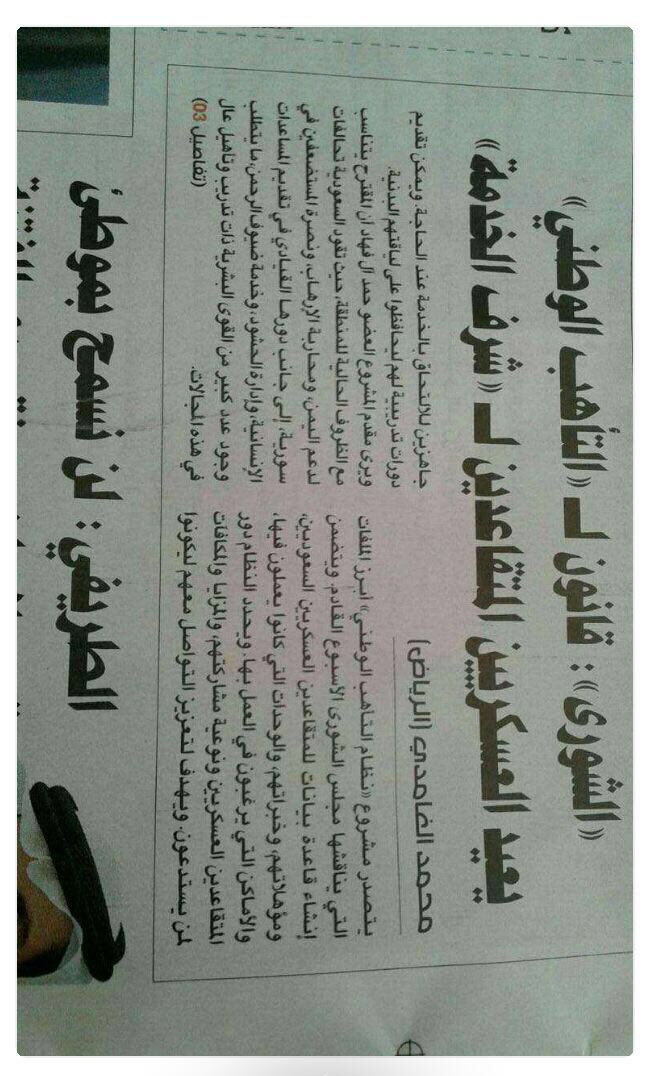 «الشورى»: قانون لـ «التأهب الوطني»
يعيد العسكريين المتقاعدين لـ «شرف الخدمة»
محمد الغامدي (الرياض)
يتصدر مشروع «نظام التأهب الوطني» أبرز الملفات
التي يناقشها مجلس الشورى الأسبوع القادم. ويتضمن
إنشاء قاعدة بيانات للمتقاعدين العسكريين السعوديين،
ومؤهلاتهم، وخبراتهم، والوحدات التي كانوا يعملون فيها،
والأماكن التي يرغبون في العمل بها. ويحدد النظام دور
المتقاعدين العسكريين ونوعية مشاركتهم، والمزايا والمكافآت
لمن يستدعون ويهدف لتعزيز التواصل معهم ليكونوا
جاهزين للالتحاق بالخدمة عند الحاجة. ويمكن تقديم
دورات تدريبية لهم ليحافظوا على لياقتهم البدنية.
ويرى مقدم المشروع العضو حمد آل فهاد أن المقترح يتناسب
مع الظروف الحالية للمنطقة، حيث تقود السعودية تحالفات
لدعم اليمن، ومحاربة الإرهاب، ونصرة المستضعفين في
سورية، إلى جانب دورها القيادي في تقديم المساعدات
الإنسانية، وإدارة الحشود، وخدمة ضيوف الرحمن، ما يتطلب
وجود عدد كبير من القوى البشرية ذات تدريب وتأهيل عال
في هذه المجالات.
(تفاصيل 03)
الطريفي: لن نسمح بموطئ